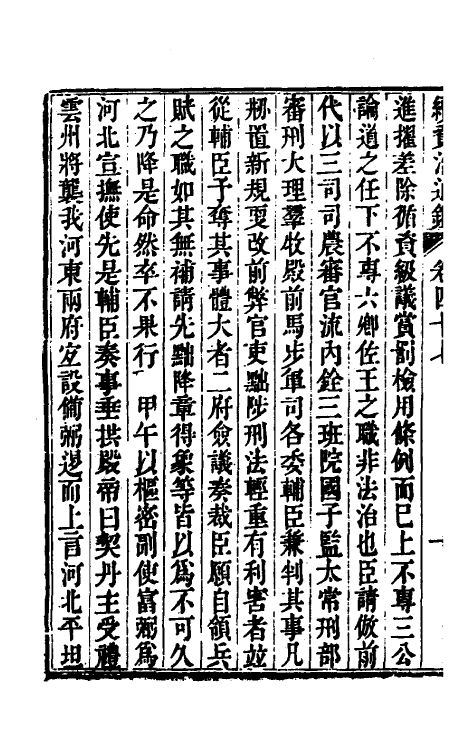 續資治通鑑 卷四十七
進擢差除循資級議賞罰檢用條例而已上不專三公
論道之任下不專六卿佐王之職非法治也臣請倣前
代以三司司農審官流內銓三班院國子監太常刑部
審刑大理羣牧殿前馬步軍司各委輔臣兼判其事凡
刱置新規更改前弊官吏黜陟刑法輕重有利害者並
從輔臣予奪其事體大者二府僉議奏裁臣願自領兵
賦之職如其無補請先黜降章得象等皆以爲不可久
之乃降是命然卒不果行 甲午以樞密副使富弼爲
河北宣撫使先是輔臣奏事垂拱殿帝曰契丹主受禮
雲州將襲我河東兩府宜設備弼退而上言河北平坦